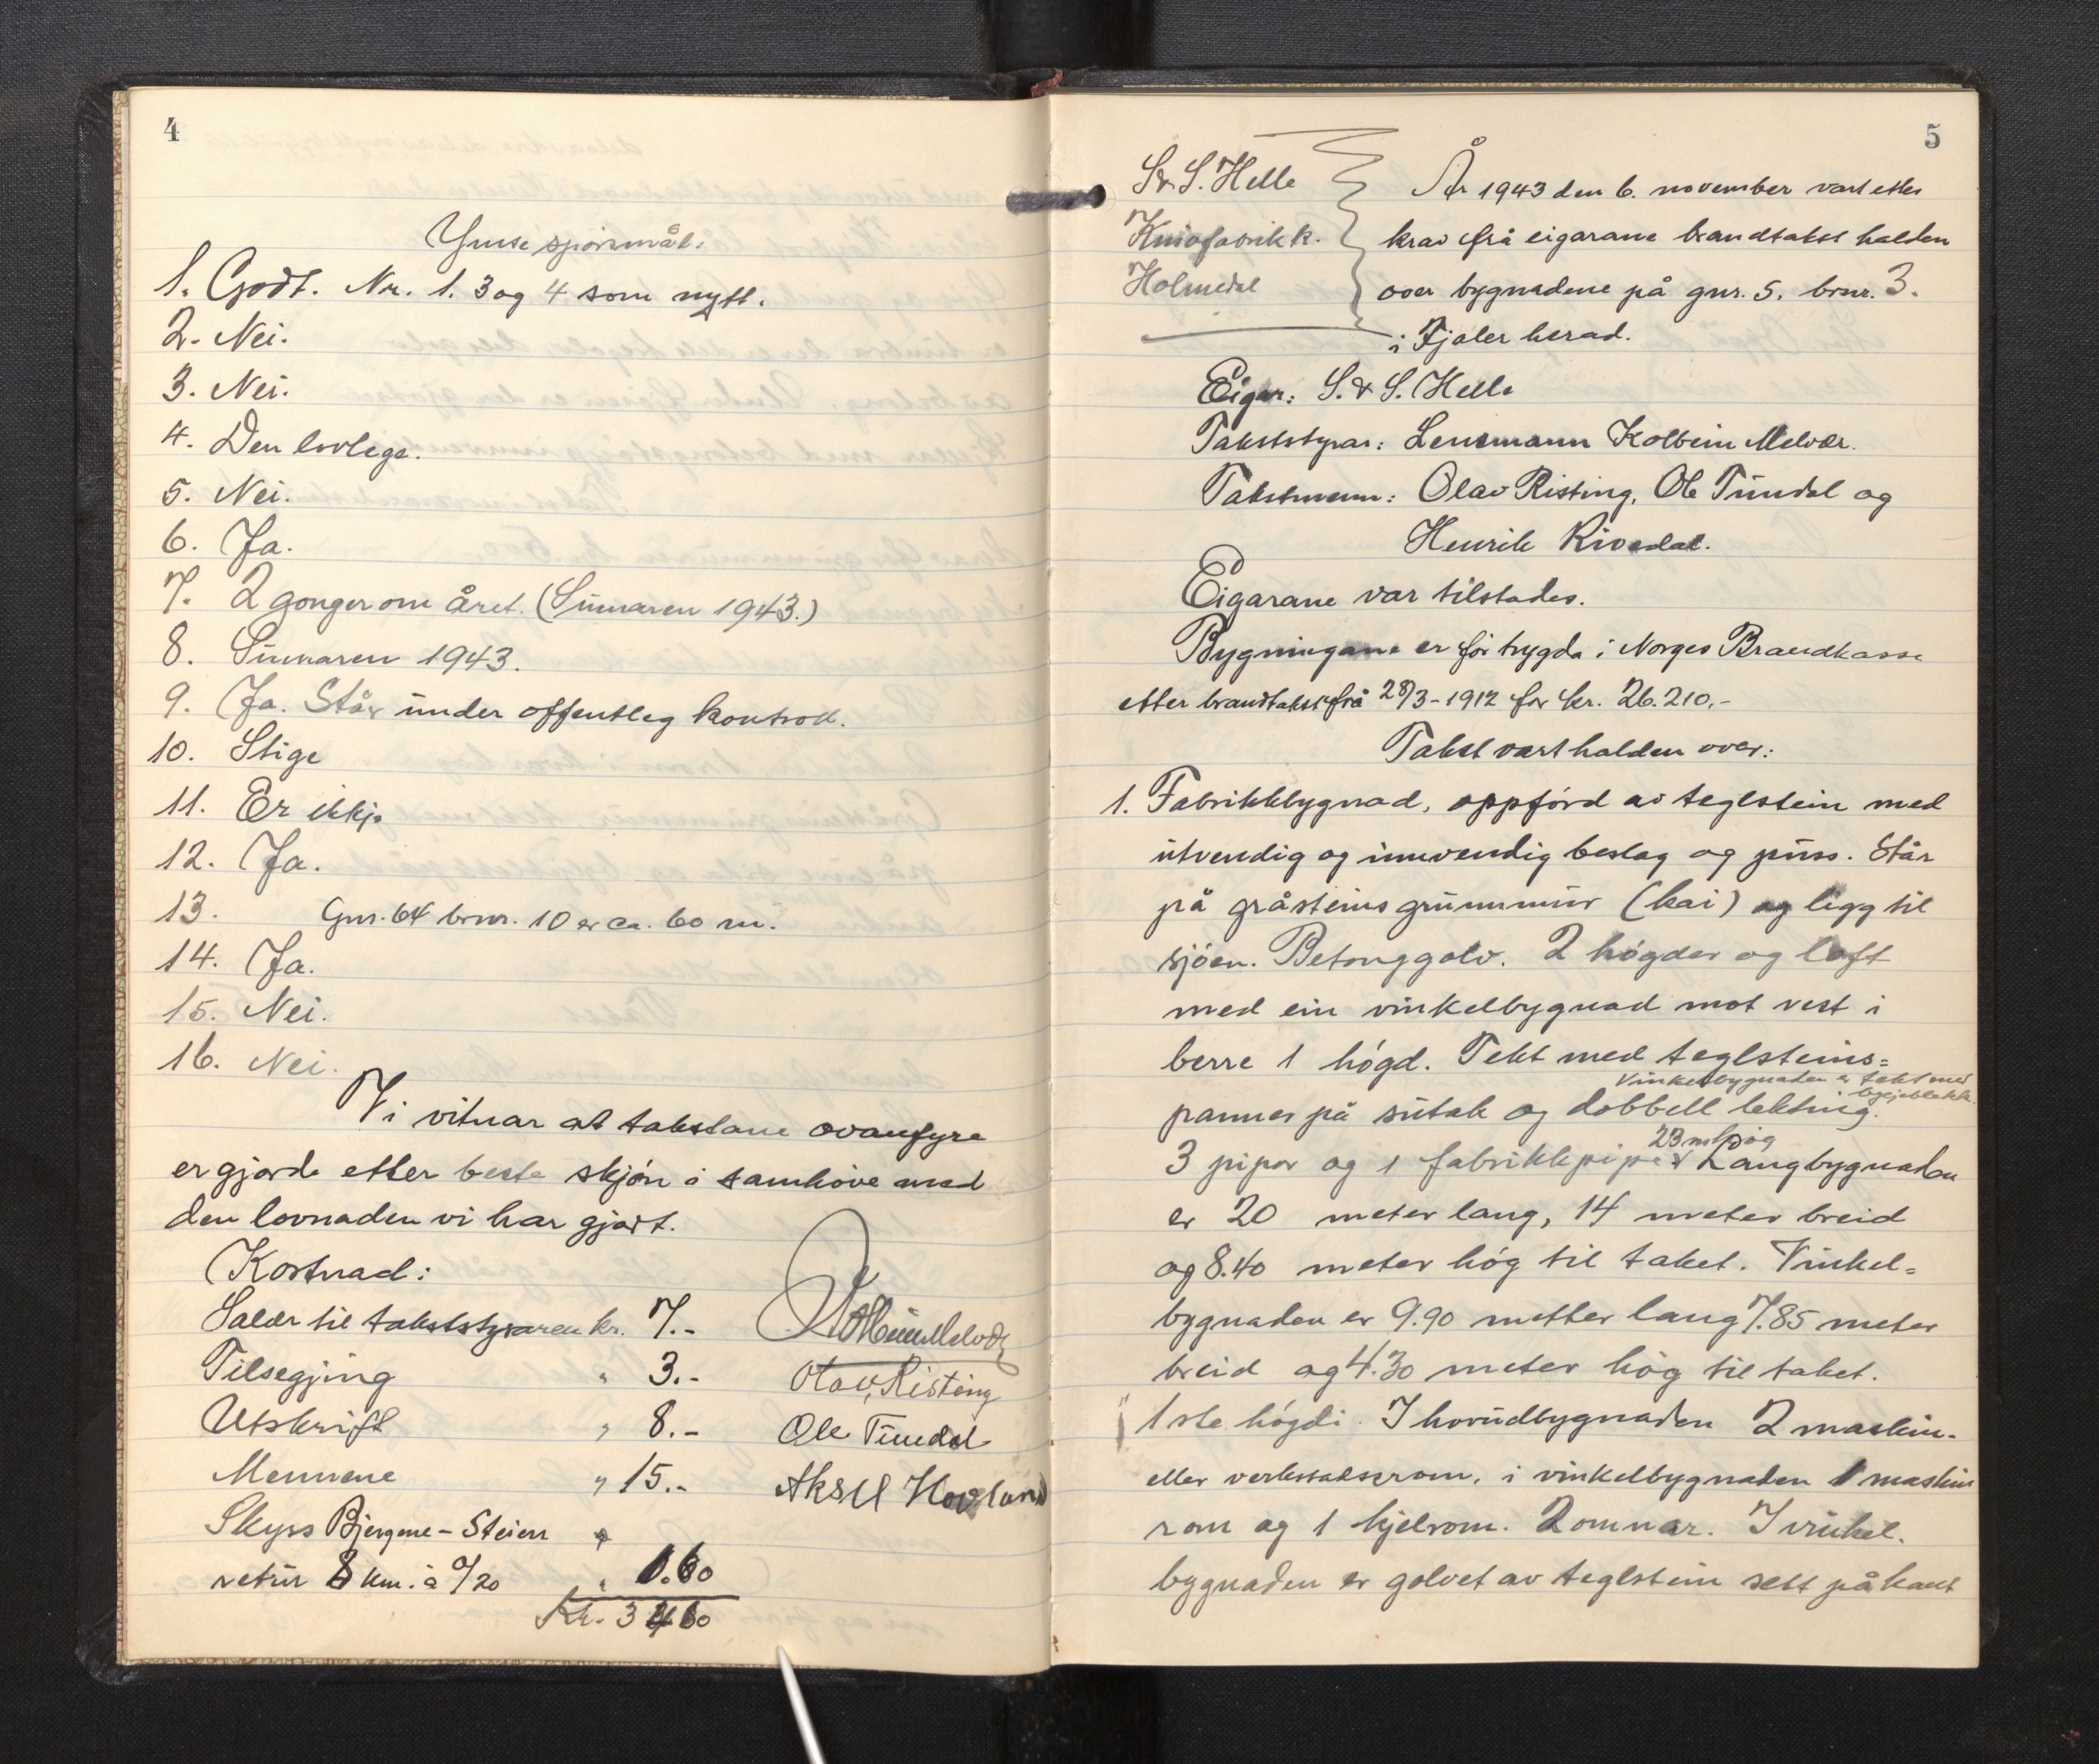 4
Ymse spórsmål:
1. Godt. Nr. 1. 3 og 4 som nytt.
2. Nei.
3. Nei.
4. Den lovlege.
5. Nei.
6. Ja.
7. 2 gonger om året. (Sumaren 1943.)
8. Sumaren 1943.
9. Ja. Står under offentleg kontroll.
10. Stige
11. Er ikkje
12. Ja.
13. Gnr. 64 brnr. 10 er ca. 60 m.
14. Ja.
15. Nei.
16. Nei.
Vi vitnar at takstane ovanfyre
er gjorde etter beste skjón i samhóve med
den lovnaden vi har gjort.
Kostnad:
Salær til takststyraren kr. 7.-
Tilsegjing " 3.-
Utskrift " 8.-
Mennene " 15.-
Skyss Bjergene - Steien
retur 8 km. à 0/20 " 1.60
Kr. 34.60
Kolbein Melvær
Olav Risting
Ole Tundal
Aksel Hovland
5
S & S. Helle
Knivfabrikk.
Holmedal
År 1943 den 6. november vart etter
krav frå eigarane brandtakst halden
over bygnadene på gnr. 5. brnr. 3.
i Fjaler herad.
Eigar: S. & S. Helle
Takststyrar: Lensmann Kolbein Melvær.
Takstmenn: Olav Risting, Ole Tundal og
Henrik Rivedal.
Eigarane var tilstades.
Bygningane er fór trygda i Norges Brandkasse
etter brandtakst frå 28/3 - 1912 for kr. 26.210.-
Takst vart halden over:
1. Fabrikkbygnad, oppfórd av teglstein med
utvendig og innvendig beslag og puss. Står
på gråsteins grunnmur (kai) og ligg til
sjóen. Betonggolv. 2 hógder og loft
med ein vinkelbygnad mot vest i
berre 1 hógd. Tekt med teglsteins=
Vinkelbygnaden er tekt med
panner på sutak og dobbell lekting.
23 m hóg
3 pipor og 1 fabrikkpipe Langbygnaden
er 20 meter lang, 14 meter breid
og 8.40 meter hóg til taket. Vinkel=
bygnaden er 9.90 metter lang 7.85 meter
breid og 4.30 meter hóg til taket.
1ste hógdi. I hovudbygnaden 2 maskin-
eller verkstadsrom, i vinkelbygnaden 1 maskin
rom og 1 kjelrom. 2 omnar. I vinkel.
bygnaden er golvet av teglstein sett på kant